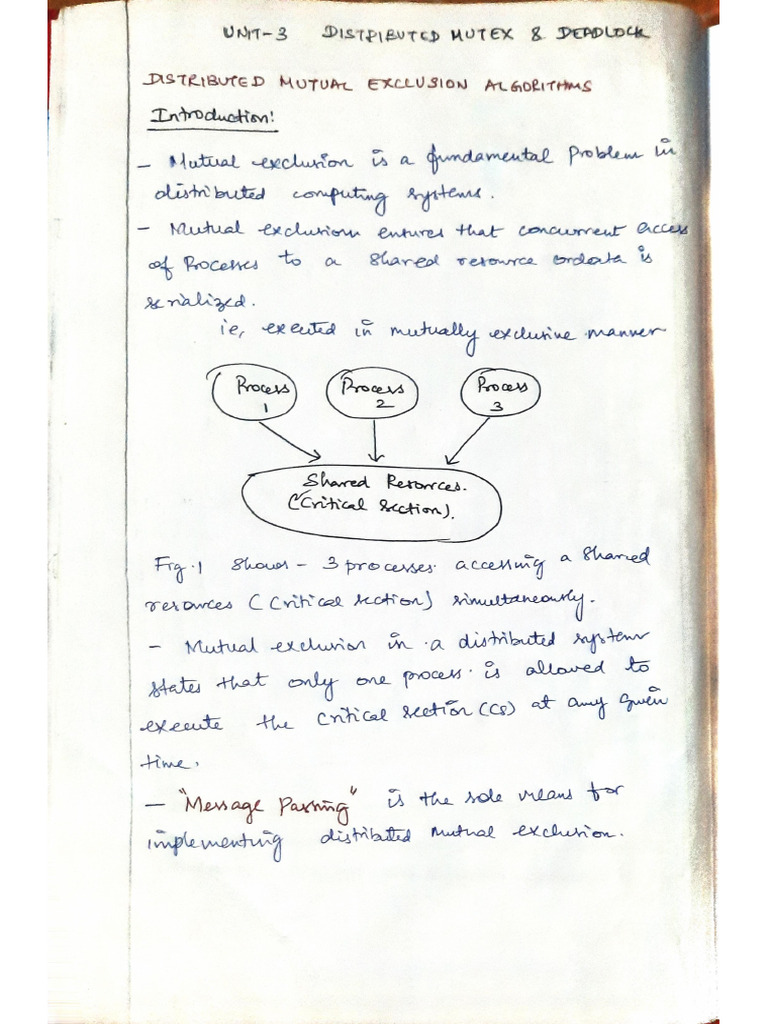 UNIT-3 DISTRIBUTED MUTEX & DEADLOCK
DISTRIBUTED MUTUAL EXCLUSION ALGORITHMS
Introduction:
- Mutual exclusion is a fundamental problem in
distributed computing systems.
- Mutual exclusion ensures that concurrent access
of Processes to a shared resource or data is
serialized.
ie, executed in mutually exclusive manner
Process 1
Process 2
Process 3
Shared Resources.
(Critical section).
Fig.1 Shows - 3 processes accessing a shared
resources (Critical section) simultaneously.
- Mutual exclusion in a distributed system
states that only one process is allowed to
execute the Critical section (CS) at any given
time.
- "Message Passing" is the sole means for
implementing distributed mutual exclusion.